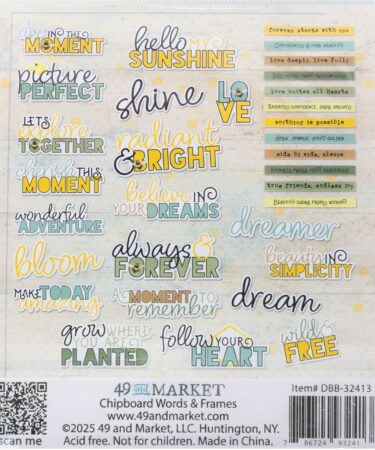 live IN THE
MOMENT
picture
PERFECT
LET'S
explore
TOGETHER
cherish THIS
MOMENT
wonderful
ADVENTURE
bloom
MAKE TODAY
amazing
grow WHERE
YOU ARE
PLANTED
hello MY
SUNSHINE
shine
LO
VE
radiant
&BRIGHT
believe IN
YOUR DREAMS
always &
FOREVER
A MOMENT TO
remember
follow YOUR
HEART
forever starts with you
love deeply, live fully
love unites all hearts
anything is possible
side by side, always
true friends, endless joy
dreamer
beauty IN
SIMPLICITY
dream
wild &
FREE
scan me
49 and MARKET
Chipboard Words & Frames
www.49andmarket.com
©2025 49 and Market, LLC. Huntington, NY.
Acid free. Not for children. Made in China.
Item# DBB-32413
7 86724 93241